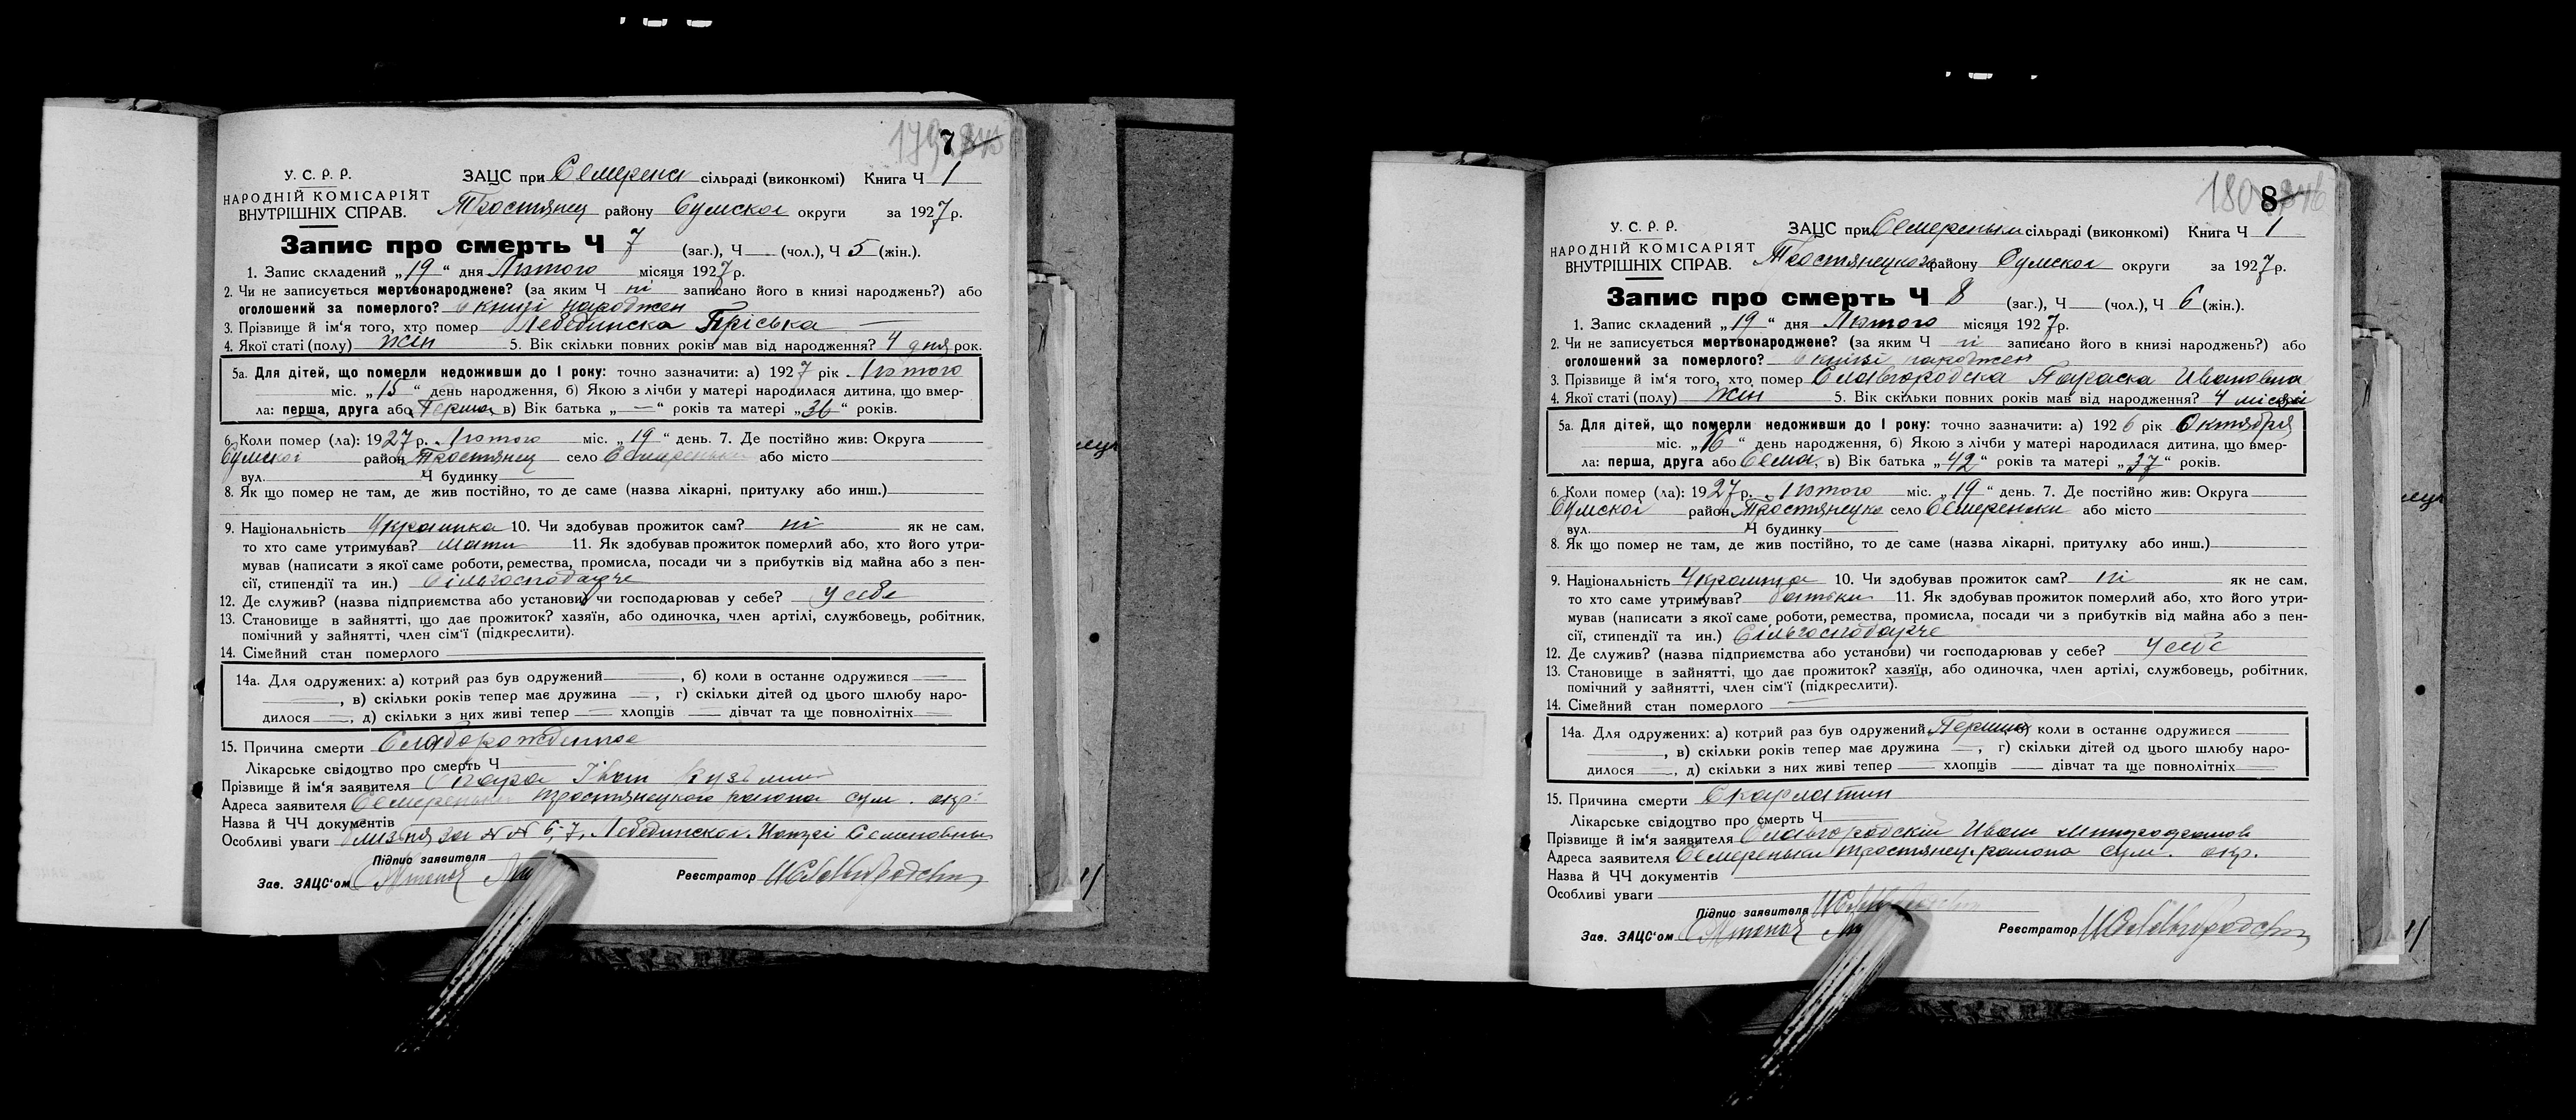 179
7
У. С. Р. Р.
НАРОДНІЙ КОМІСАРІЯТ
ВНУТРІШНІХ СПРАВ.
ЗАЦС при Семерень сільраді (виконкомі) Книга Ч 1
Тростянец району Сумскої округи за 1927 р.
Запис про смерть Ч 7 (заг.), Ч — (чол.), Ч 5 (жін.).
1. Запис складений „19“ дня Лютого місяця 1927 р.
2. Чи не записується мертвонароджене? (за яким Ч ні записано його в книзі народжень?) або
оголошений за померлого? в книзі народжен
3. Прізвище й ім'я того, хто помер Лебединска Пріська —
4. Якої статі (полу) жін 5. Вік скільки повних років мав від народження? 4 дня рок.
5а. Для дітей, що померли недоживши до 1 року: точно зазначити: а) 1927 рік Лютого
міс. „15“ день народження, б) Якою з лічби у матері народилася дитина, що вмер-
ла: перша, друга або Перша, в) Вік батька „—“ років та матері „36“ років.
6. Коли помер (ла): 1927 р. Лютого міс. „19“ день. 7. Де постійно жив: Округа
Сумскої район Тростянец село Семереньки або місто
вул. Ч будинку
8. Як що помер не там, де жив постійно, то де саме (назва лікарні, притулку або инш.)
9. Національність Украинка 10. Чи здобував прожиток сам? ні як не сам,
то хто саме утримував? мати 11. Як здобував прожиток померлий або, хто його утри-
мував (написати з якої саме роботи, ремества, промисла, посади чи з прибутків від майна або з пен-
сії, стипендії та ин.) Сільгосподарче
12. Де служив? (назва підприємства або установи) чи господарював у себе? у себе
13. Становище в зайнятті, що дає прожиток? хазяїн, або одиночка, член артілі, службовець, робітник,
помічний у зайнятті, член сім'ї (підкреслити).
14. Сімейний стан померлого
14а. Для одружених: а) котрий раз був одружений —, б) коли в останнє одружився —
—, в) скільки років тепер має дружина —, г) скільки дітей од цього шлюбу наро-
дилося —, д) скільки з них живі тепер — хлопців — дівчат та ще повнолітніх —
15. Причина смерти Слаборожденное
Лікарське свідоцтво про смерть Ч
Прізвище й ім'я заявителя Іван Кузьмин
Адреса заявителя Семереньки тростянецкого района сум. окр.
Назва й ЧЧ документів
Особливі уваги близня за N N 6, 7, Лебединской Семеновны
Підпис заявителя
Зав. ЗАЦС'ом
Реєстратор ИСлавгородски
180
8
У. С. Р. Р.
НАРОДНІЙ КОМІСАРІЯТ
ВНУТРІШНІХ СПРАВ.
ЗАЦС при Семереньки сільраді (виконкомі) Книга Ч 1
Тростянецкого району Сумскої округи за 1927 р.
Запис про смерть Ч 8 (заг.), Ч — (чол.), Ч 6 (жін.).
1. Запис складений „19“ дня Лютого місяця 1927 р.
2. Чи не записується мертвонароджене? (за яким Ч ні записано його в книзі народжень?) або
оголошений за померлого? в книзі народжен
3. Прізвище й ім'я того, хто помер Славгородска Параска Ивановна
4. Якої статі (полу) жін 5. Вік скільки повних років мав від народження? 4 місяці
5а. Для дітей, що померли недоживши до 1 року: точно зазначити: а) 1926 рік Октября
міс. „16“ день народження, б) Якою з лічби у матері народилася дитина, що вмер-
ла: перша, друга або Сема, в) Вік батька „42“ років та матері „37“ років.
6. Коли помер (ла): 1927 р. Лютого міс. „19“ день. 7. Де постійно жив: Округа
Сумскої район Тростянецко село Семереньки або місто
вул. Ч будинку
8. Як що помер не там, де жив постійно, то де саме (назва лікарні, притулку або инш.)
9. Національність Украинка 10. Чи здобував прожиток сам? ні як не сам,
то хто саме утримував? батьки 11. Як здобував прожиток померлий або, хто його утри-
мував (написати з якої саме роботи, ремества, промисла, посади чи з прибутків від майна або з пен-
сії, стипендії та ин.) Сільгосподарче
12. Де служив? (назва підприємства або установи) чи господарював у себе? у себе
13. Становище в зайнятті, що дає прожиток? хазяїн, або одиночка, член артілі, службовець, робітник,
помічний у зайнятті, член сім'ї (підкреслити).
14. Сімейний стан померлого —
14а. Для одружених: а) котрий раз був одружений Перший коли в останнє одружився
—, в) скільки років тепер має дружина —, г) скільки дітей од цього шлюбу наро-
дилося —, д) скільки з них живі тепер — хлопців — дівчат та ще повнолітніх —
15. Причина смерти Скарлатин
Лікарське свідоцтво про смерть Ч
Прізвище й ім'я заявителя Славгородский Иван
Адреса заявителя Семереньки тростянец. района сум. окр.
Назва й ЧЧ документів
Особливі уваги
Підпис заявителя
Зав. ЗАЦС'ом
Реєстратор ИСлавгородски